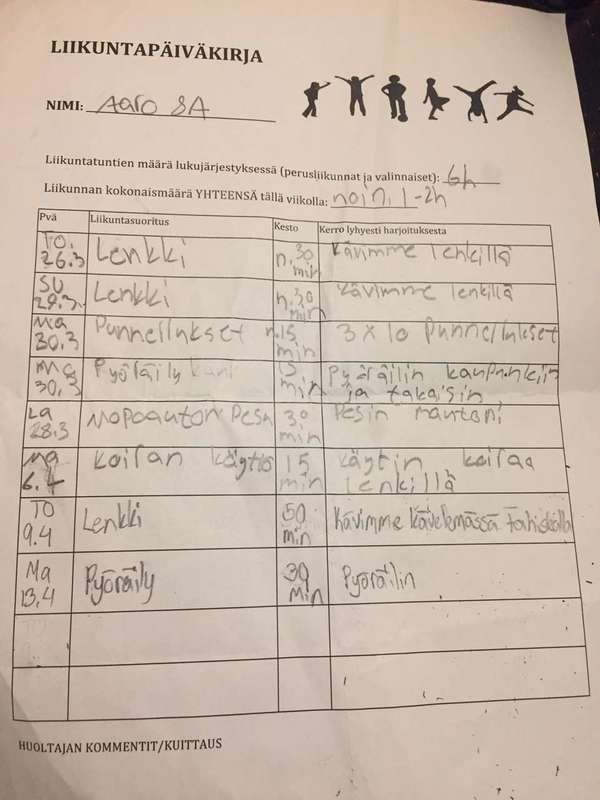 LIIKUNTAPÄIVÄKIRJA
NIMI: Aaro 8A
Liikuntatuntien määrä lukujärjestyksessä (perusliikunnat ja valinnaiset): 6h
Liikunnan kokonaismäärä YHTEENSÄ tällä viikolla: noin. 1-2h
Pvä Liikuntasuoritus Kesto Kerro lyhyesti harjoituksesta
To. 26.3 Lenkki n.30 min Kävimme lenkillä
SU 29.3. Lenkki n.30 min Kävimme lenkillä
Ma 30.3 Punnerrukset n.15 min 3 x 10 Punnerrukset
Ma 30.3 Pyöräily 15 min Pyöräilin kaupunkiin ja takaisin
La 28.3 Mopoauton Pesu 30 min Pesin mautoni
Ma 6.4 Koiran käyttö 15 min käytin koiraa lenkillä
TO 9.4 Lenkki 50 min Kävimme kävelemässä Tahiskolla
Ma 13.4 Pyöräily 30 min Pyöräilin
HUOLTAJAN KOMMENTIT/KUITTAUS